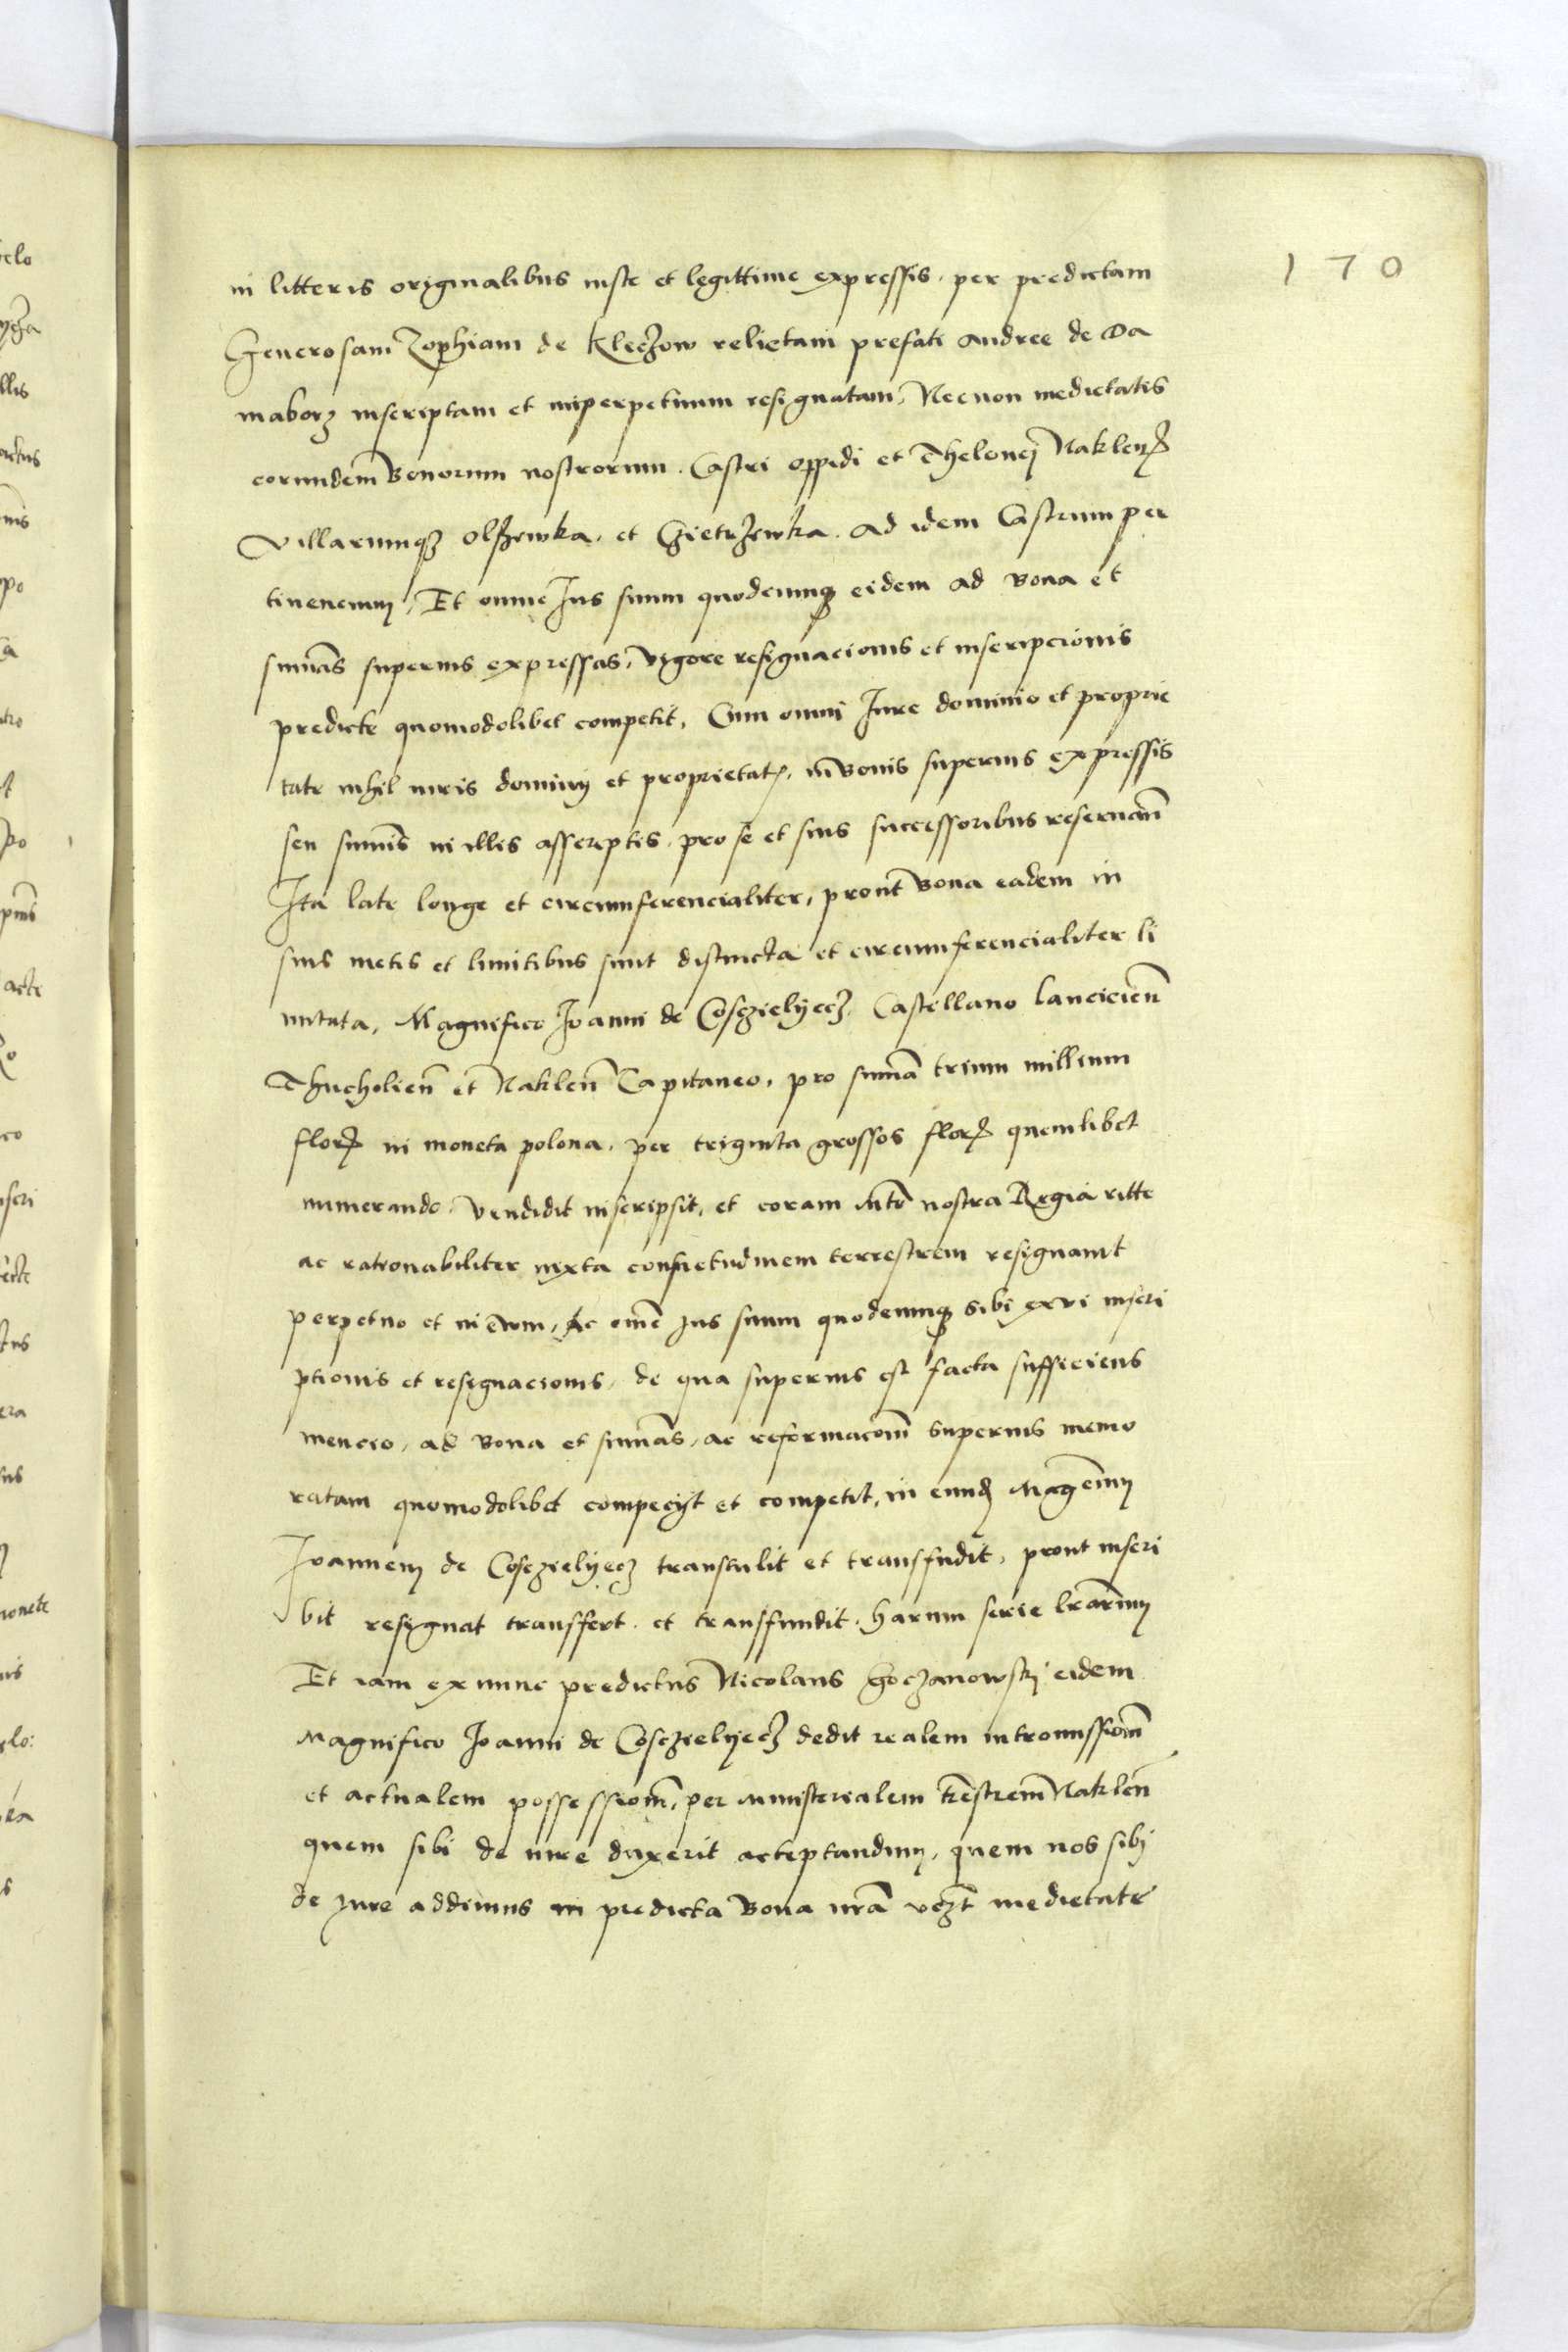 170
in litteris originalibus iuste et legittime expressis, per predictam
Generosam Zophiam de Kleczow relictam prefati Andree de Da
maborz inscriptam et imperpetuum resignatam, Necnon medietatis
eorundem Bonorum nostrorum. Castri oppidi et Thelonej Naklen̄
Villarumqȝ Olszewka, et Gietrzewka. Ad idem Castrum per
tinencium, Et omne Ius suum quodcumqȝ eidem ad Bona et
sumās superius expressas, vigore resignacionis et inscripcionis
predicte quomodolibet competit, Cum omni Iure dominio et proprie
tate nihil iuris dominij et proprietat(is), in Bonis superius expressis
seu sum̄is in illis asscriptis, pro se et suis successoribus reseruan̄
Ita late longe et circumferencialiter, prout Bona eadem in
suis metis et limitibus sunt distincta et circumferencialiter li
mitata, Magnifico Ioanni de Cosczielyecz Castellano Lancicien̄
Thucholien̄ et Naklen̄ Capitaneo, pro sumā trium millium
flor̄ in moneta polona, per triginta grossos flor̄ quemlibet
numerando, vendidit inscripsit, et coram Mte nostra Regia ritte
ac rationabiliter iuxta consuetudinem terrestrem resignauit
perpetuo et in ēwm, Ac omē Ius suum quodcumqȝ sibi ex vi inscri
ptionis et resignacionis, de qua superius est facta sufficiens
mencio, ad Bona et sumās, ac reformacōm superius memo
ratam quomodolibet compecyt et competit, in eund̄ Mag̅cum
Ioannem de Cosczielyecz transtulit et transfudit, prout inscri
bit resignat transfert et transfundit harum serie lr̄arum
Et iam ex nunc predictus Nicolaus Goczanowskj eidem
Magnifico Ioanni de Cosczielyecz dedit realem intromissiōm
et actualem possessiōm, per ministerialem tr̄estrem Naklen̄
quem sibi de iure duxerit acceptandum, quem nos sibj
de Iure addimus in predicta Bona nr̄a vcȝt medietate